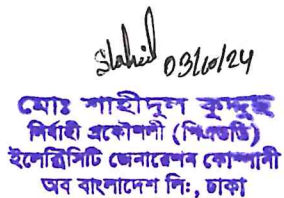 Shahid 03/10/24
মোঃ শাহীদুল কুদ্দুছ
নির্বাহী প্রকৌশলী (পিএন্ডডি)
ইলেক্ট্রিসিটি জেনারেশন কোম্পানী
অব বাংলাদেশ লিঃ, ঢাকা